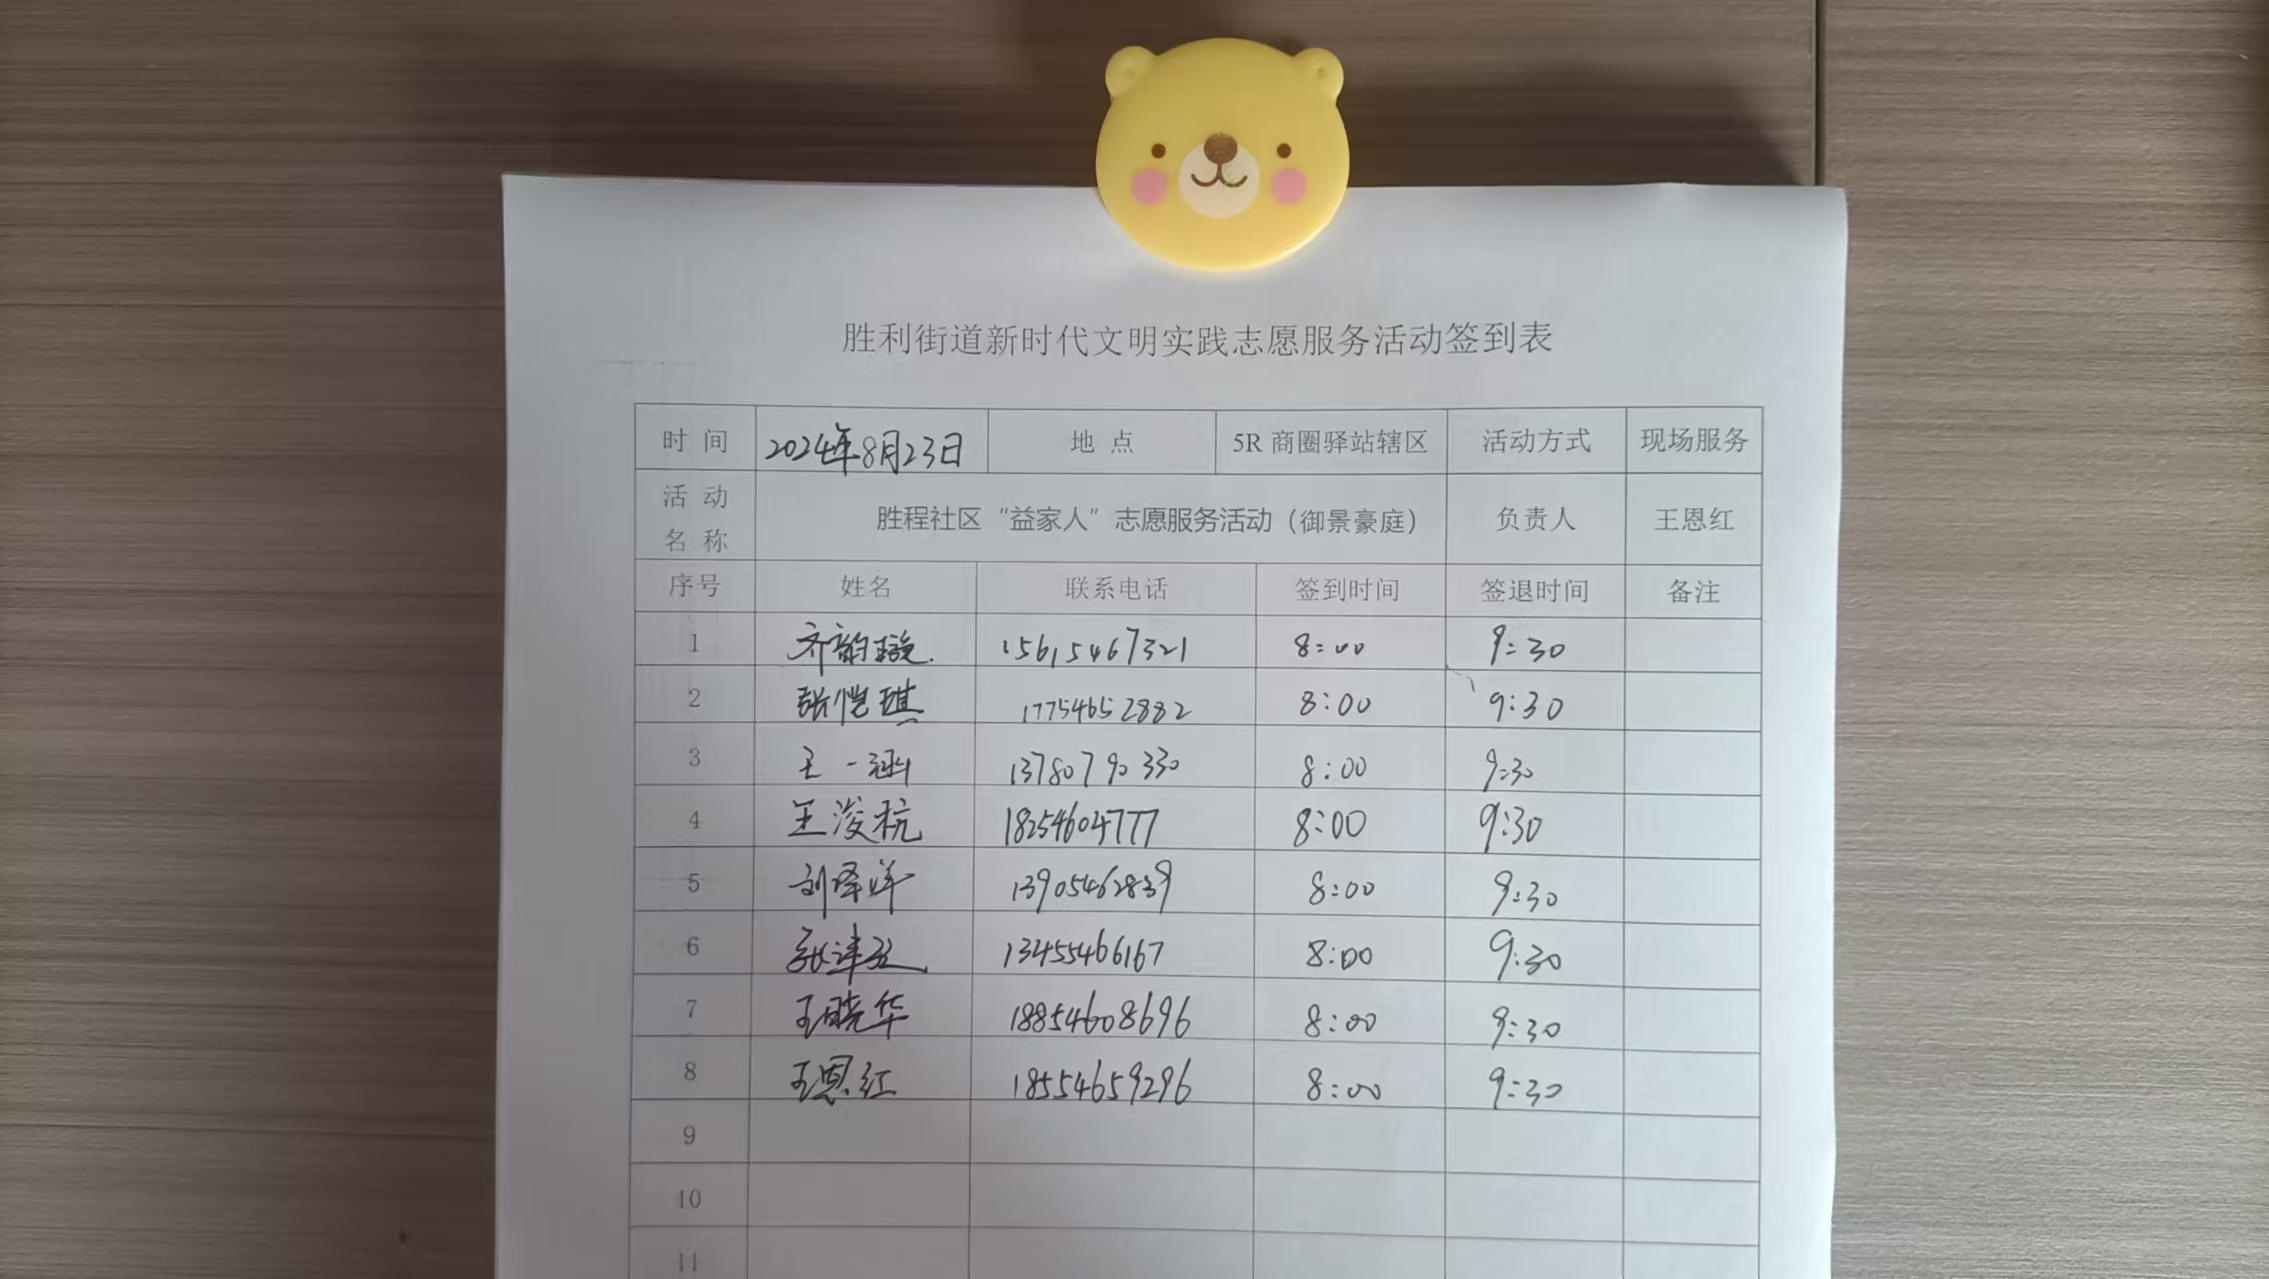 胜利街道新时代文明实践志愿服务活动签到表
时 间 2024年8月23日 地 点 5R 商圈驿站辖区 活动方式 现场服务
活 动 名 称 胜程社区“益家人”志愿服务活动（御景豪庭） 负责人 王恩红
序号 姓名 联系电话 签到时间 签退时间 备注
1 齐韵璇 15615467321 8:00 9:30
2 张恺琪 17754652882 8:00 9:30
3 王一涵 13780790330 8:00 9:30
4 王浚杭 18254604777 8:00 9:30
5 刘泽洋 13905462839 8:00 9:30
6 13455466167 8:00 9:30
7 王晓华 18854608696 8:00 9:30
8 王恩红 18554659296 8:00 9:30
9
10
11